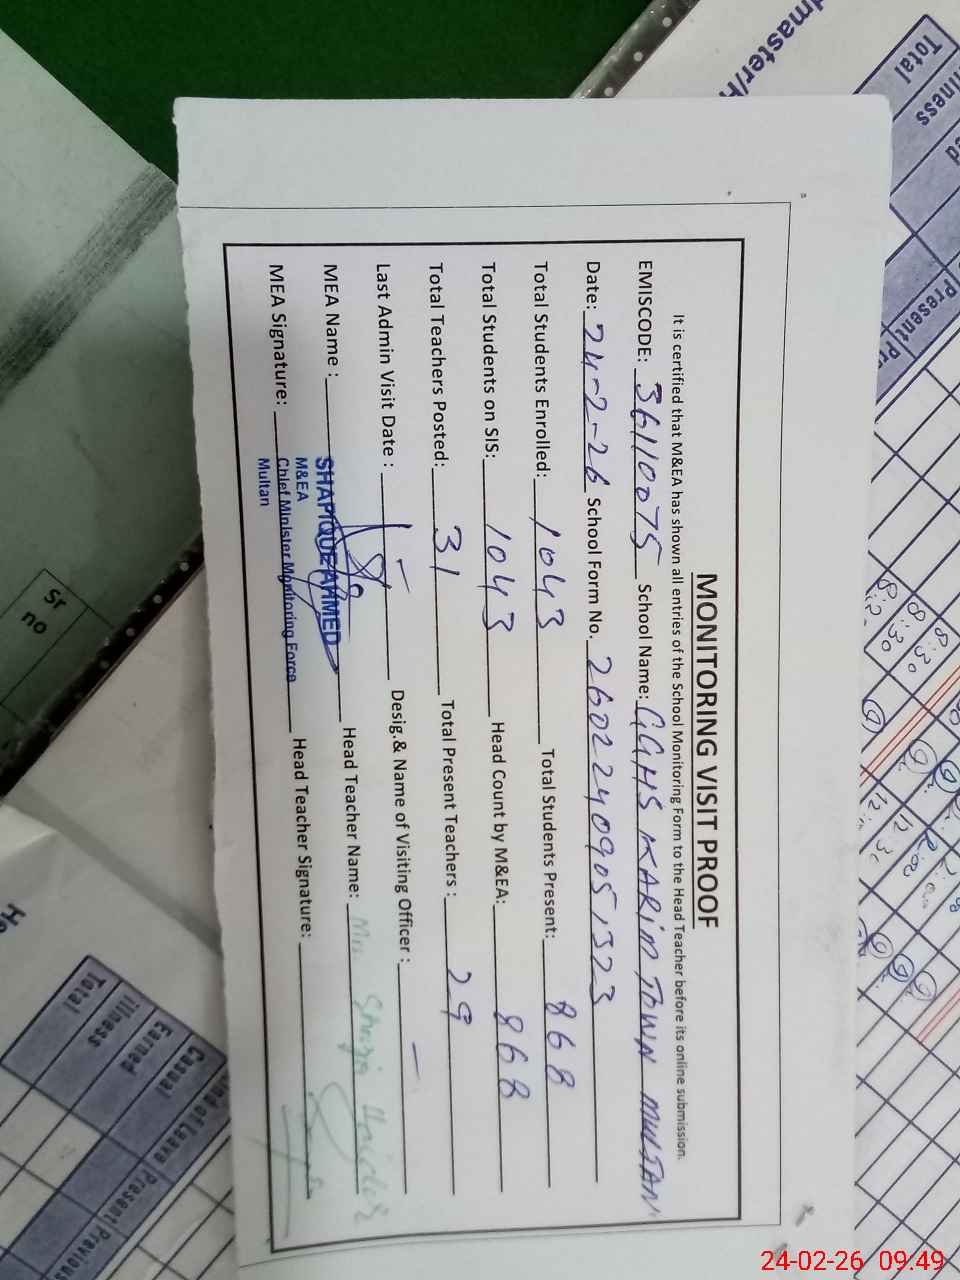 MONITORING VISIT PROOF
It is certified that M&EA has shown all entries of the School Monitoring Form to the Head Teacher before its online submission.
EMISCODE: 36110075 School Name: GGHS KARIM TOWN MULTAN
Date: 24-2-26 School Form No. 26022409051323
Total Students Enrolled: 1043 Total Students Present: 868
Total Students on SIS: 1043 Head Count by M&EA: 868
Total Teachers Posted: 31 Total Present Teachers : 29
Last Admin Visit Date : — Desig.& Name of Visiting Officer : —
MEA Name : SHAFIQUE AHMED Head Teacher Name:
M&EA
MEA Signature: Chief Minister Monitoring Force Head Teacher Signature:
Multan
dmaster/H
Total
illness
Present
Sr
no
8:30
8:30
Total
illness
Earned
Casual
Kind of Leave
Present
Previous
He
24-02-26 09:49